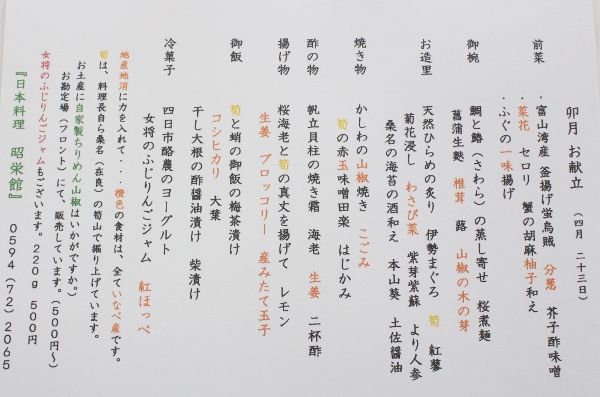 卯月 お献立 （四月 二十三日）
前菜
・富山湾産 釜揚げ蛍烏賊 分葱 芥子酢味噌
・菜花 セロリ 蟹の胡麻柚子和え
・ふぐの一味揚げ
御椀
鯛と鰆（さわら）の蒸し寄せ 桜煮麺
菖蒲生麩 椎茸 蕗 山椒の木の芽
お造里
天然ひらめの炙り 伊勢まぐろ 筍 紅蓼
菊花浸し わさび菜 紫芽紫蘇 より人参
桑名の海苔の酒和え 本山葵 土佐醤油
焼き物
かしわの山椒焼き こごみ
筍の赤玉味噌田楽 はじかみ
酢の物
帆立貝柱の焼き霜 海老 生姜 二杯酢
揚げ物
桜海老と筍の真丈を揚げて レモン
生姜 ブロッコリー 産みたて玉子
御飯
筍と蛸の御飯の梅茶漬け
コシヒカリ 大葉
干し大根の酢醤油漬け 柴漬け
冷菓子
四日市酪農のヨーグルト
女将のふじりんごジャム 紅ほっぺ
地産地消に力を入れて・・橙色の食材は、全ていなべ産です。
筍は、料理長自ら桑名（在良）の筍山で掘り上げています。
お土産に自家製ちりめん山椒はいかがですか。
お勘定場（フロント）にて、販売しています。（500円～）
女将のふじりんごジャムもございます。220g 500円
『日本料理 昭栄館』 0594（72）2065